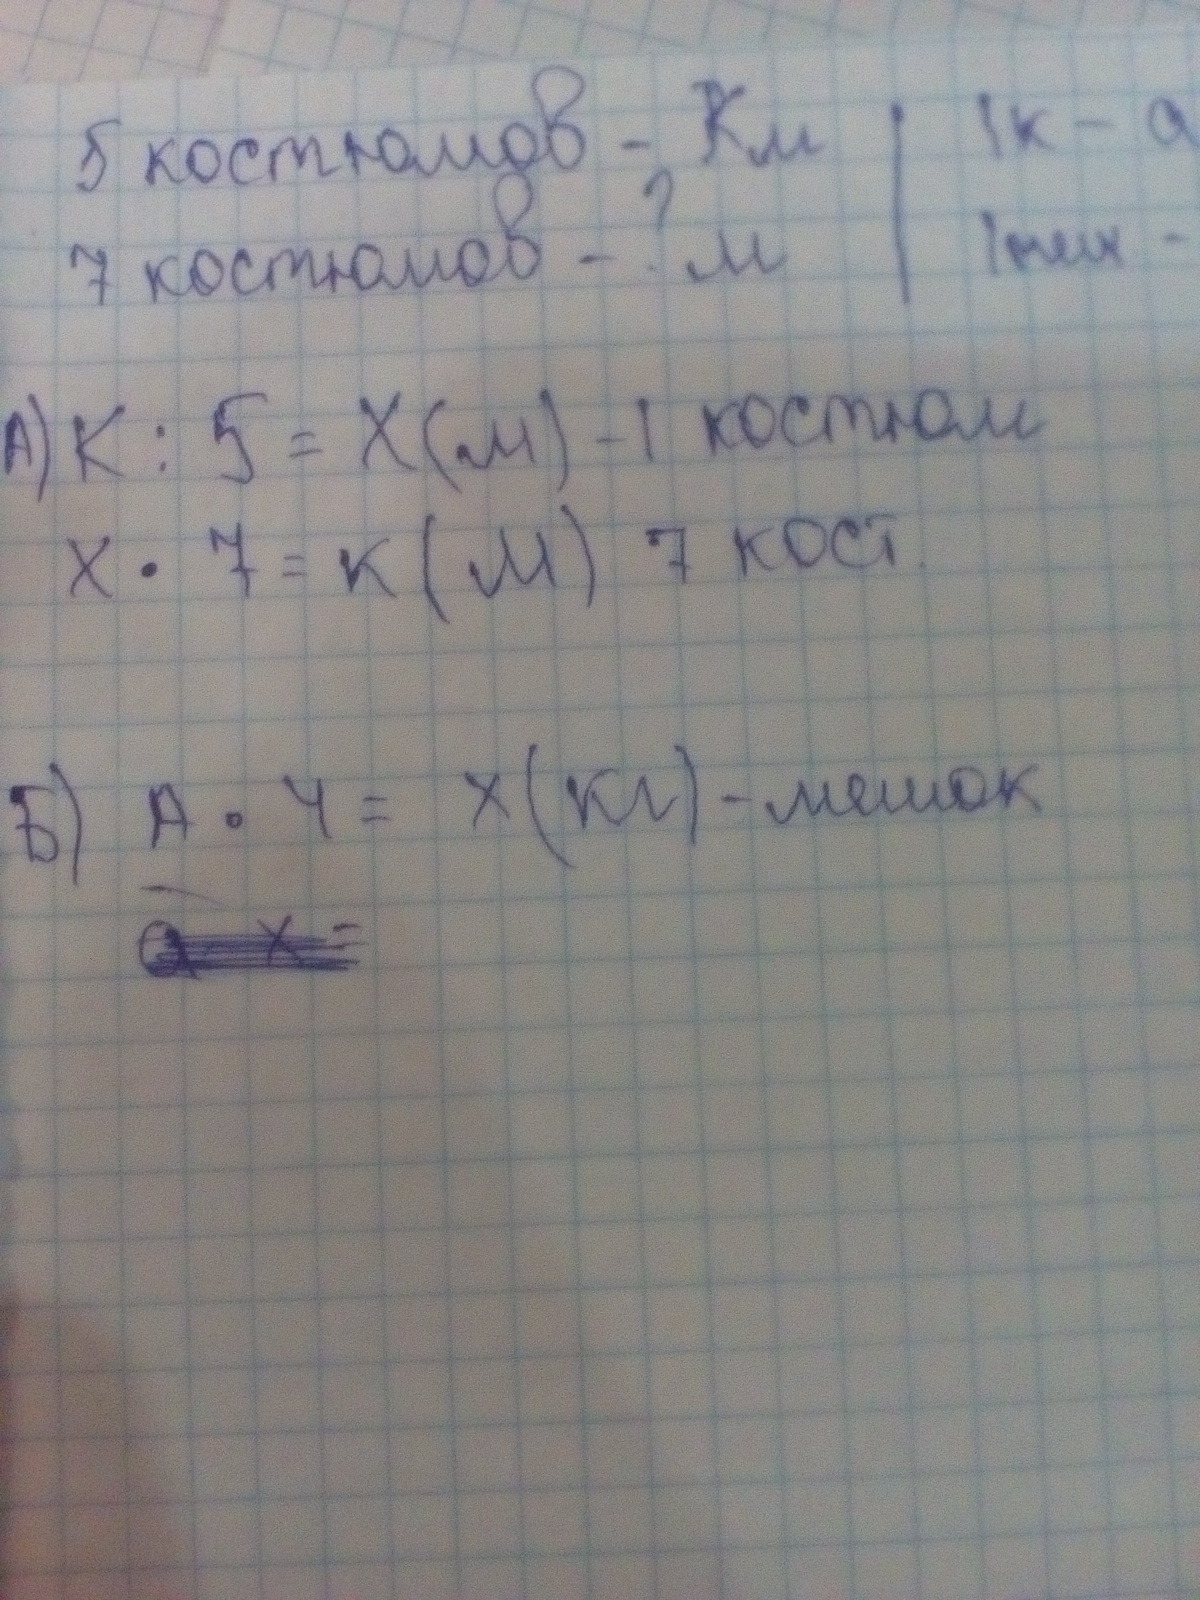 5 костюмов - Км | 1к - а
7 костюмов - ? м | 1меш -
А) К : 5 = Х(м) - 1 костюм
Х · 7 = к (М) 7 кост.
Б) А · 4 = х (кг) - мешок
а х =